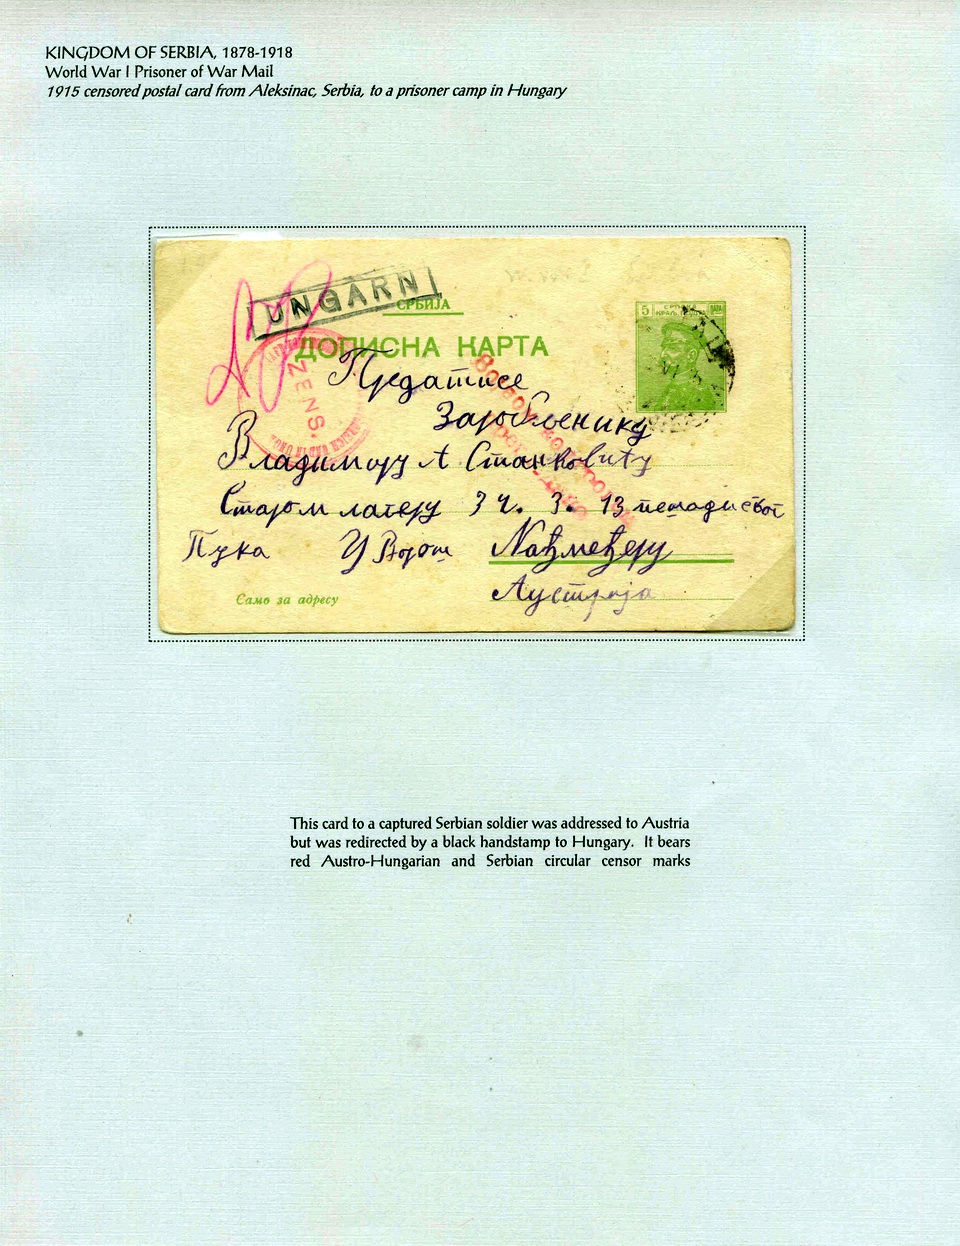 KINGDOM OF SERBIA, 1878-1918
World War I Prisoner of War Mail
1915 censored postal card from Aleksinac, Serbia, to a prisoner camp in Hungary
UNGARN
СРБИЈА
5
ДОПИСНА КАРТА
ZENS.
Предатисе
Заробљенику
Владимиру А Станковићу
Старом лагеру 3 ч. 3. 13
Пука У
Нађмеђеру
Аустрија
Само за адресу
This card to a captured Serbian soldier was addressed to Austria
but was redirected by a black handstamp to Hungary. It bears
red Austro-Hungarian and Serbian circular censor marks